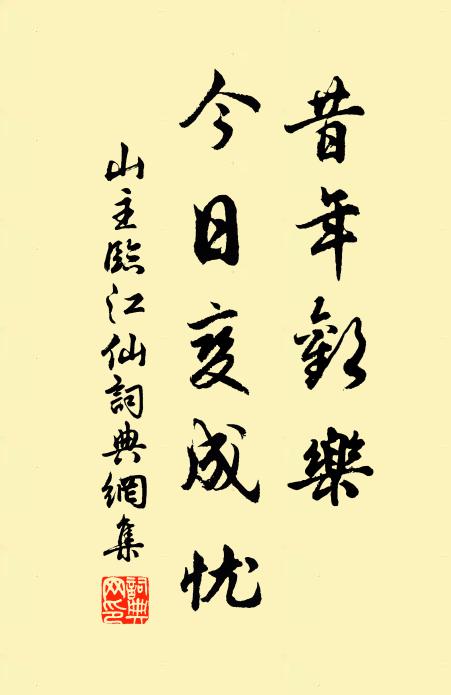 昔年歡樂
今日变成忧
山主臨江仙詞典網集
詞典网印